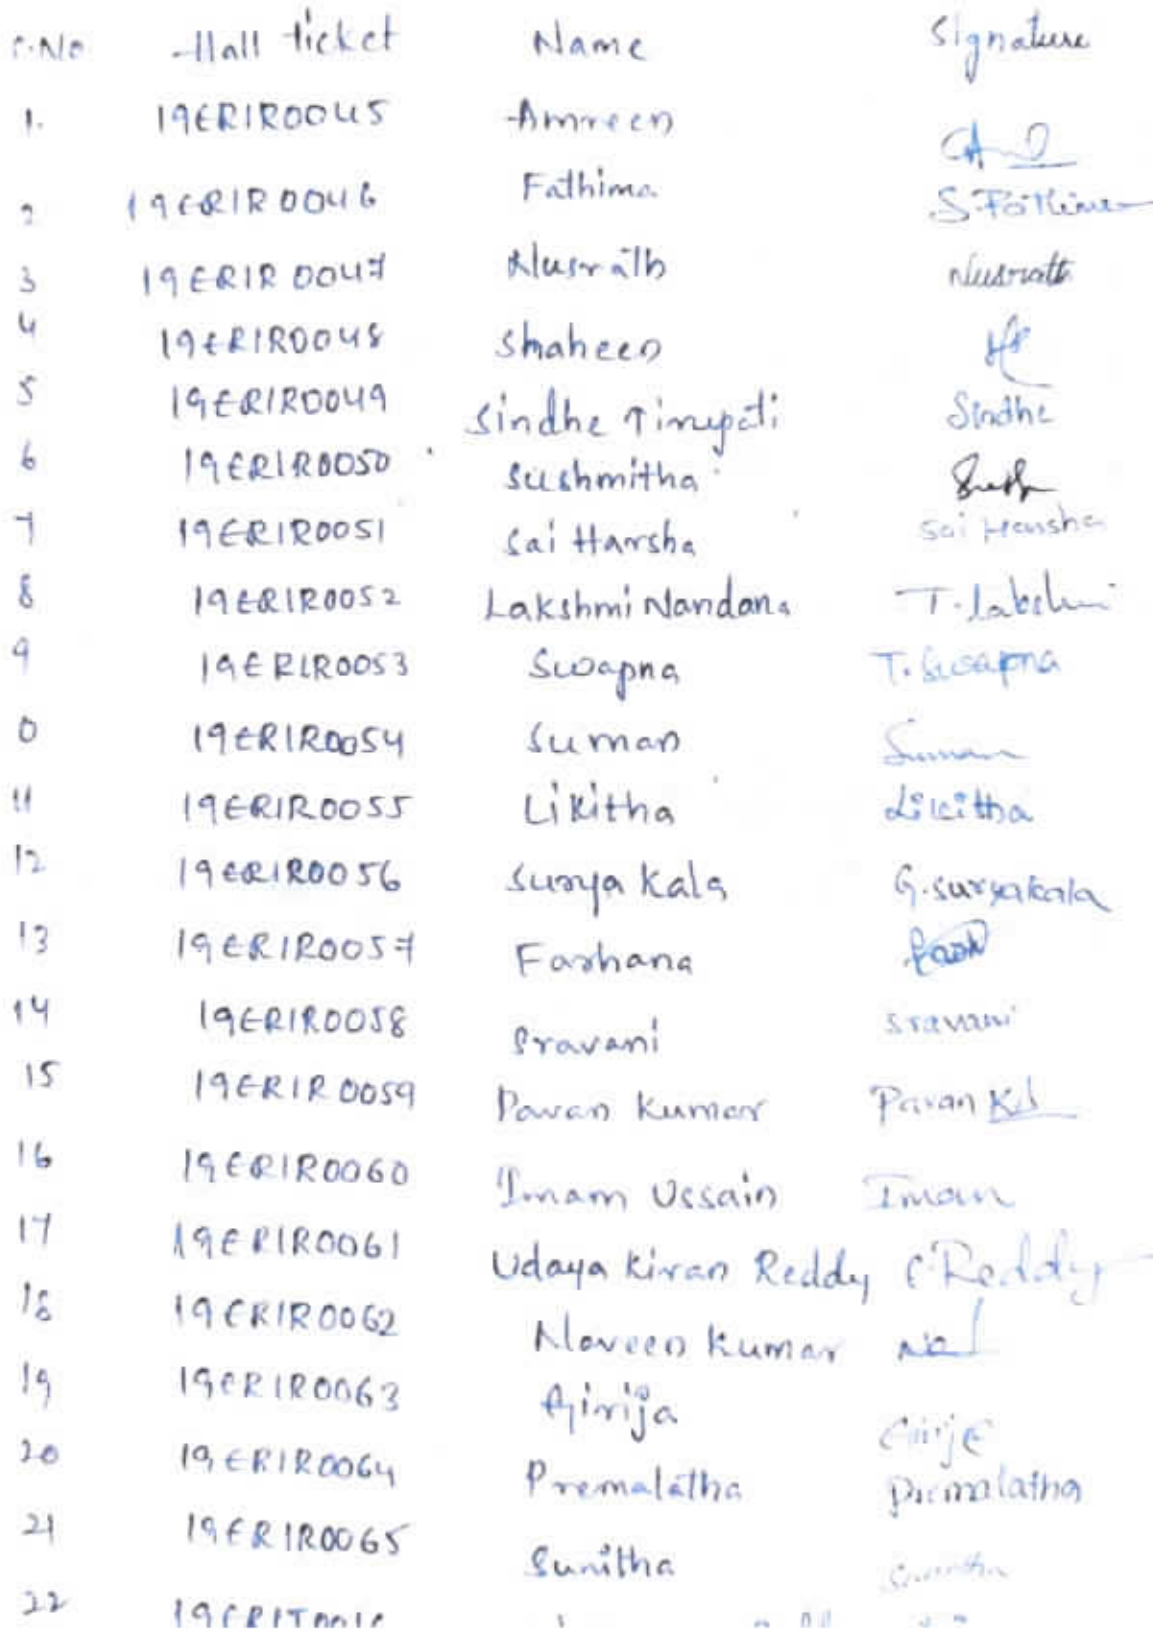 S.No Hall ticket Name Signature
1. 19ERIR0045 Amreen
2 19ERIR0046 Fathima S.Fathima
3 19ERIR0047 Nusrath Nusrath
4 19ERIR0048 Shaheen
5 19ERIR0049 Sindhe Tirupati Sindhe
6 19ERIR0050 Sushmitha
7 19ERIR0051 Sai Harsha Sai Harsha
8 19ERIR0052 Lakshmi Nandana T.Lakshmi
9 19ERIR0053 Swapna T.Swapna
0 19ERIR0054 Suman Suman
11 19ERIR0055 Likitha Likitha
12 19ERIR0056 Surya Kala G.suryakala
13 19ERIR0057 Farhana
14 19ERIR0058 Sravani sravani
15 19ERIR0059 Pavan Kumar Pavan
16 19ERIR0060 Imam Ussain Imam
17 19ERIR0061 Udaya Kiran Reddy Reddy
18 19ERIR0062 Naveen Kumar
19 19ERIR0063 Girija
20 19ERIR0064 Premalatha Premalatha
21 19ERIR0065 Sunitha Sunitha
22